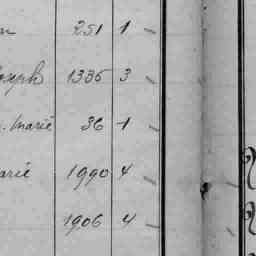 251 1
oseph 1335 3
. Marie 36 1
arie 1990 4
1906 4